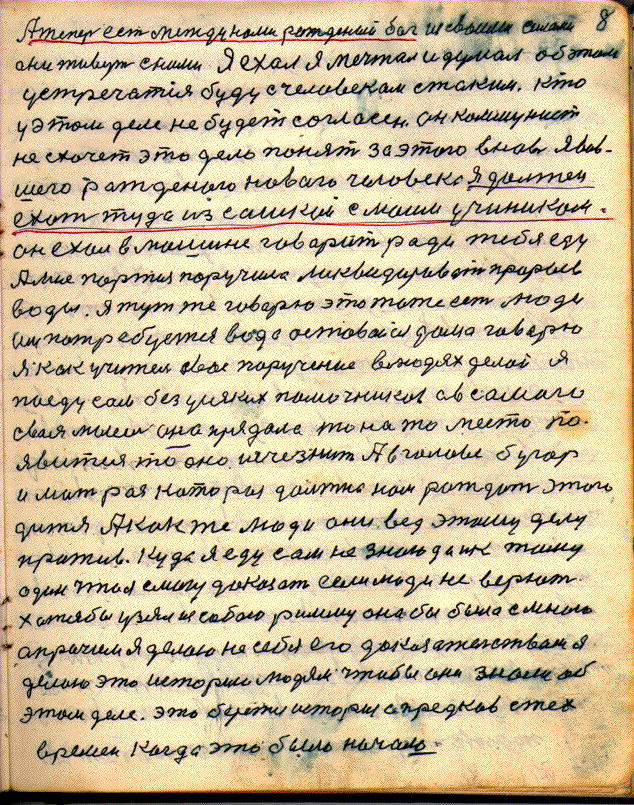 8
А теперь ест между нами рожденый бог и своими силами
они живут снами Я ехал я мечтал и думал об этом
устречатія буду с человеком с таким. кто
у этом деле не будет согласен. он коммунист
не схочет это дело понят за этого вновь явив-
шего рожденого новаго человека Я должен
ехат туда из сашкой с моим учиником.
он ехал в машине говарит ради тебя еду
А мне партия поручила ликвидироват прорыв
воды. Я тут же говарю это тоже ест люди
им потребуется вода оставайся дома говарю
Я как учител свае поручение в людях делай Я
поеду сам без усяких помочников
свая мысль она прядала то на то место по-
явится то оно исчезнит А в голове бугор
и мат рая котораядолжна нам рождат этого
дитя А как же люди они вед этому делу
против. Куда я еду сам не знаю да и к тому
один что я смогу доказат если люди не верют
хотябы узял из собою римму она бы была с мною
апрочим я делаю не себя его доказателством я
делаю это историю людям чтобы они знали об
этом деле. это берете история о предков с тех
времен когда это было начало